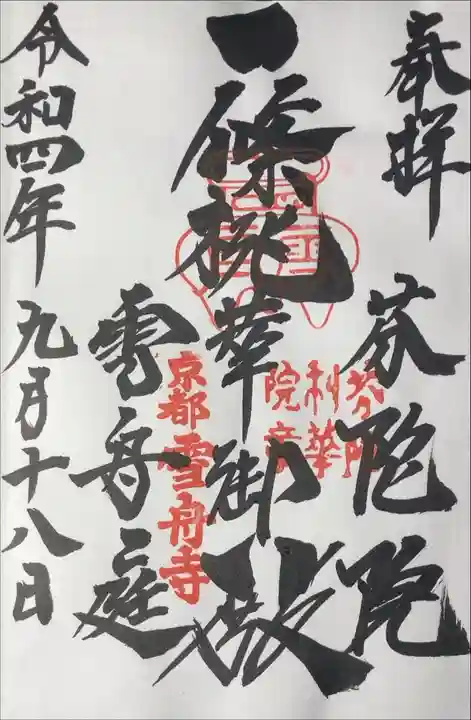 奉拝
芬陀院
一條桃華御殿
雪舟庭
令和四年 九月十八日
芬陀
利華
院章
京都雪舟寺